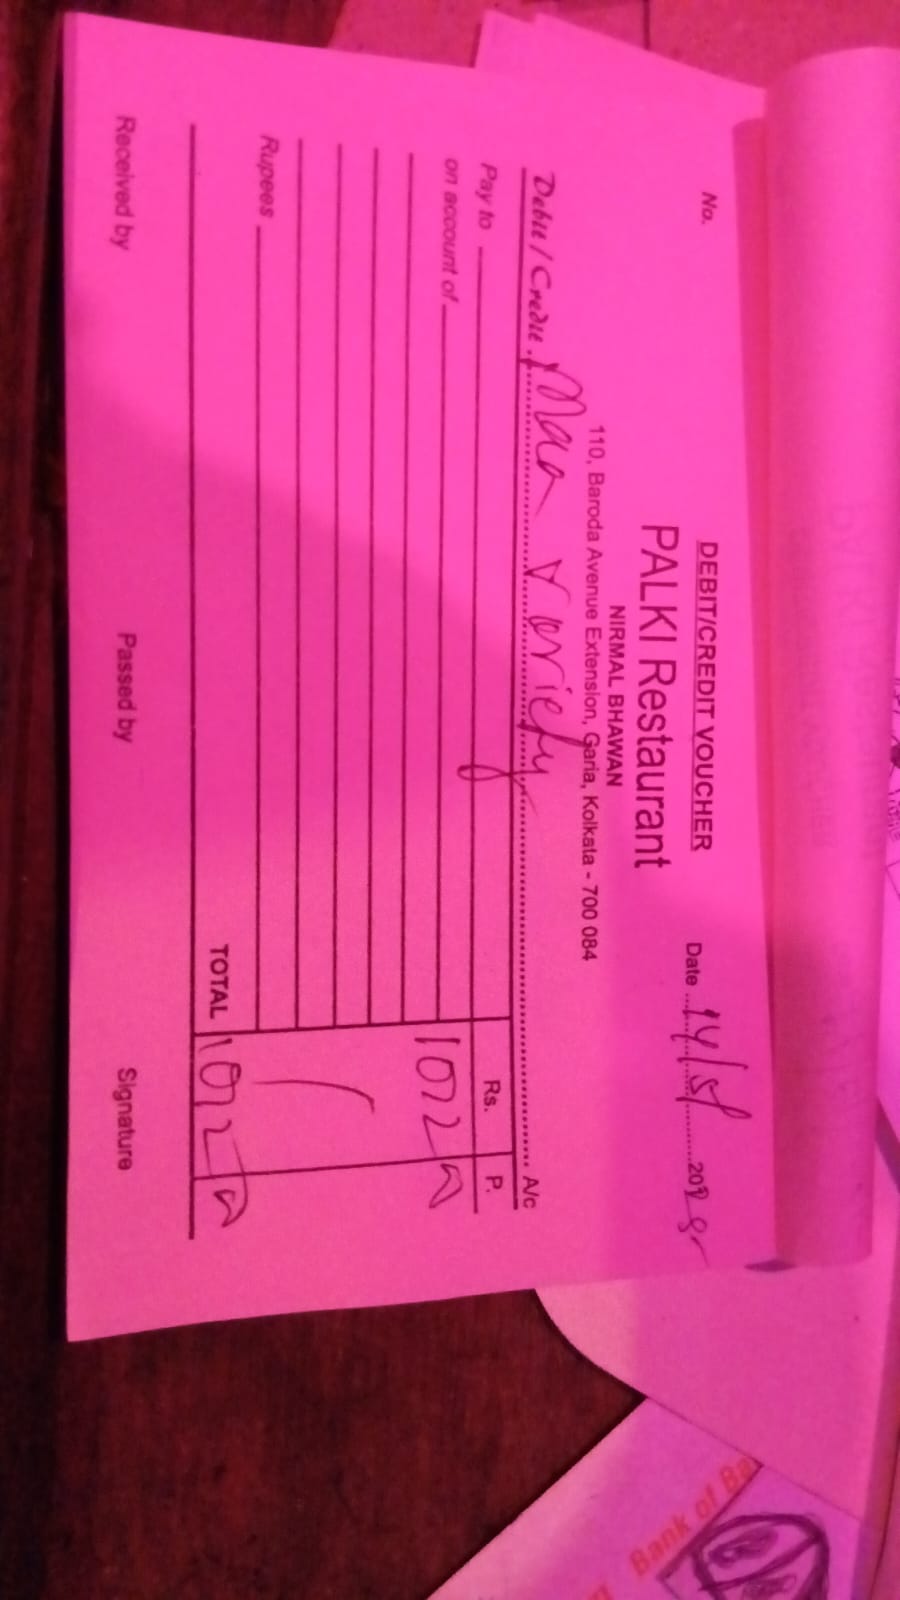 DEBIT/CREDIT VOUCHER
No.
PALKI Restaurant
Date 14/5/
NIRMAL BHAWAN
110, Baroda Avenue Extension, Garia, Kolkata - 700 084
Debit / Credit Maa Variety A/c
Pay to Rs. P.
on account of 1072
Rupees
TOTAL 1072
Received by Passed by Signature
Bank of Ba